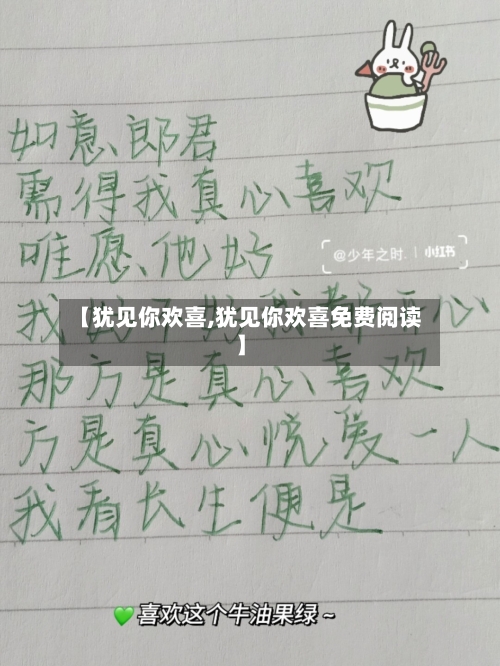 如意郎君
需得我真心喜欢
唯愿他好
@少年之时. | 小红书
我
心
【犹见你欢喜,犹见你欢喜免费阅读
】
那方是真心喜欢
方是真心悦爱一人
我看长生便是
💚喜欢这个牛油果绿～